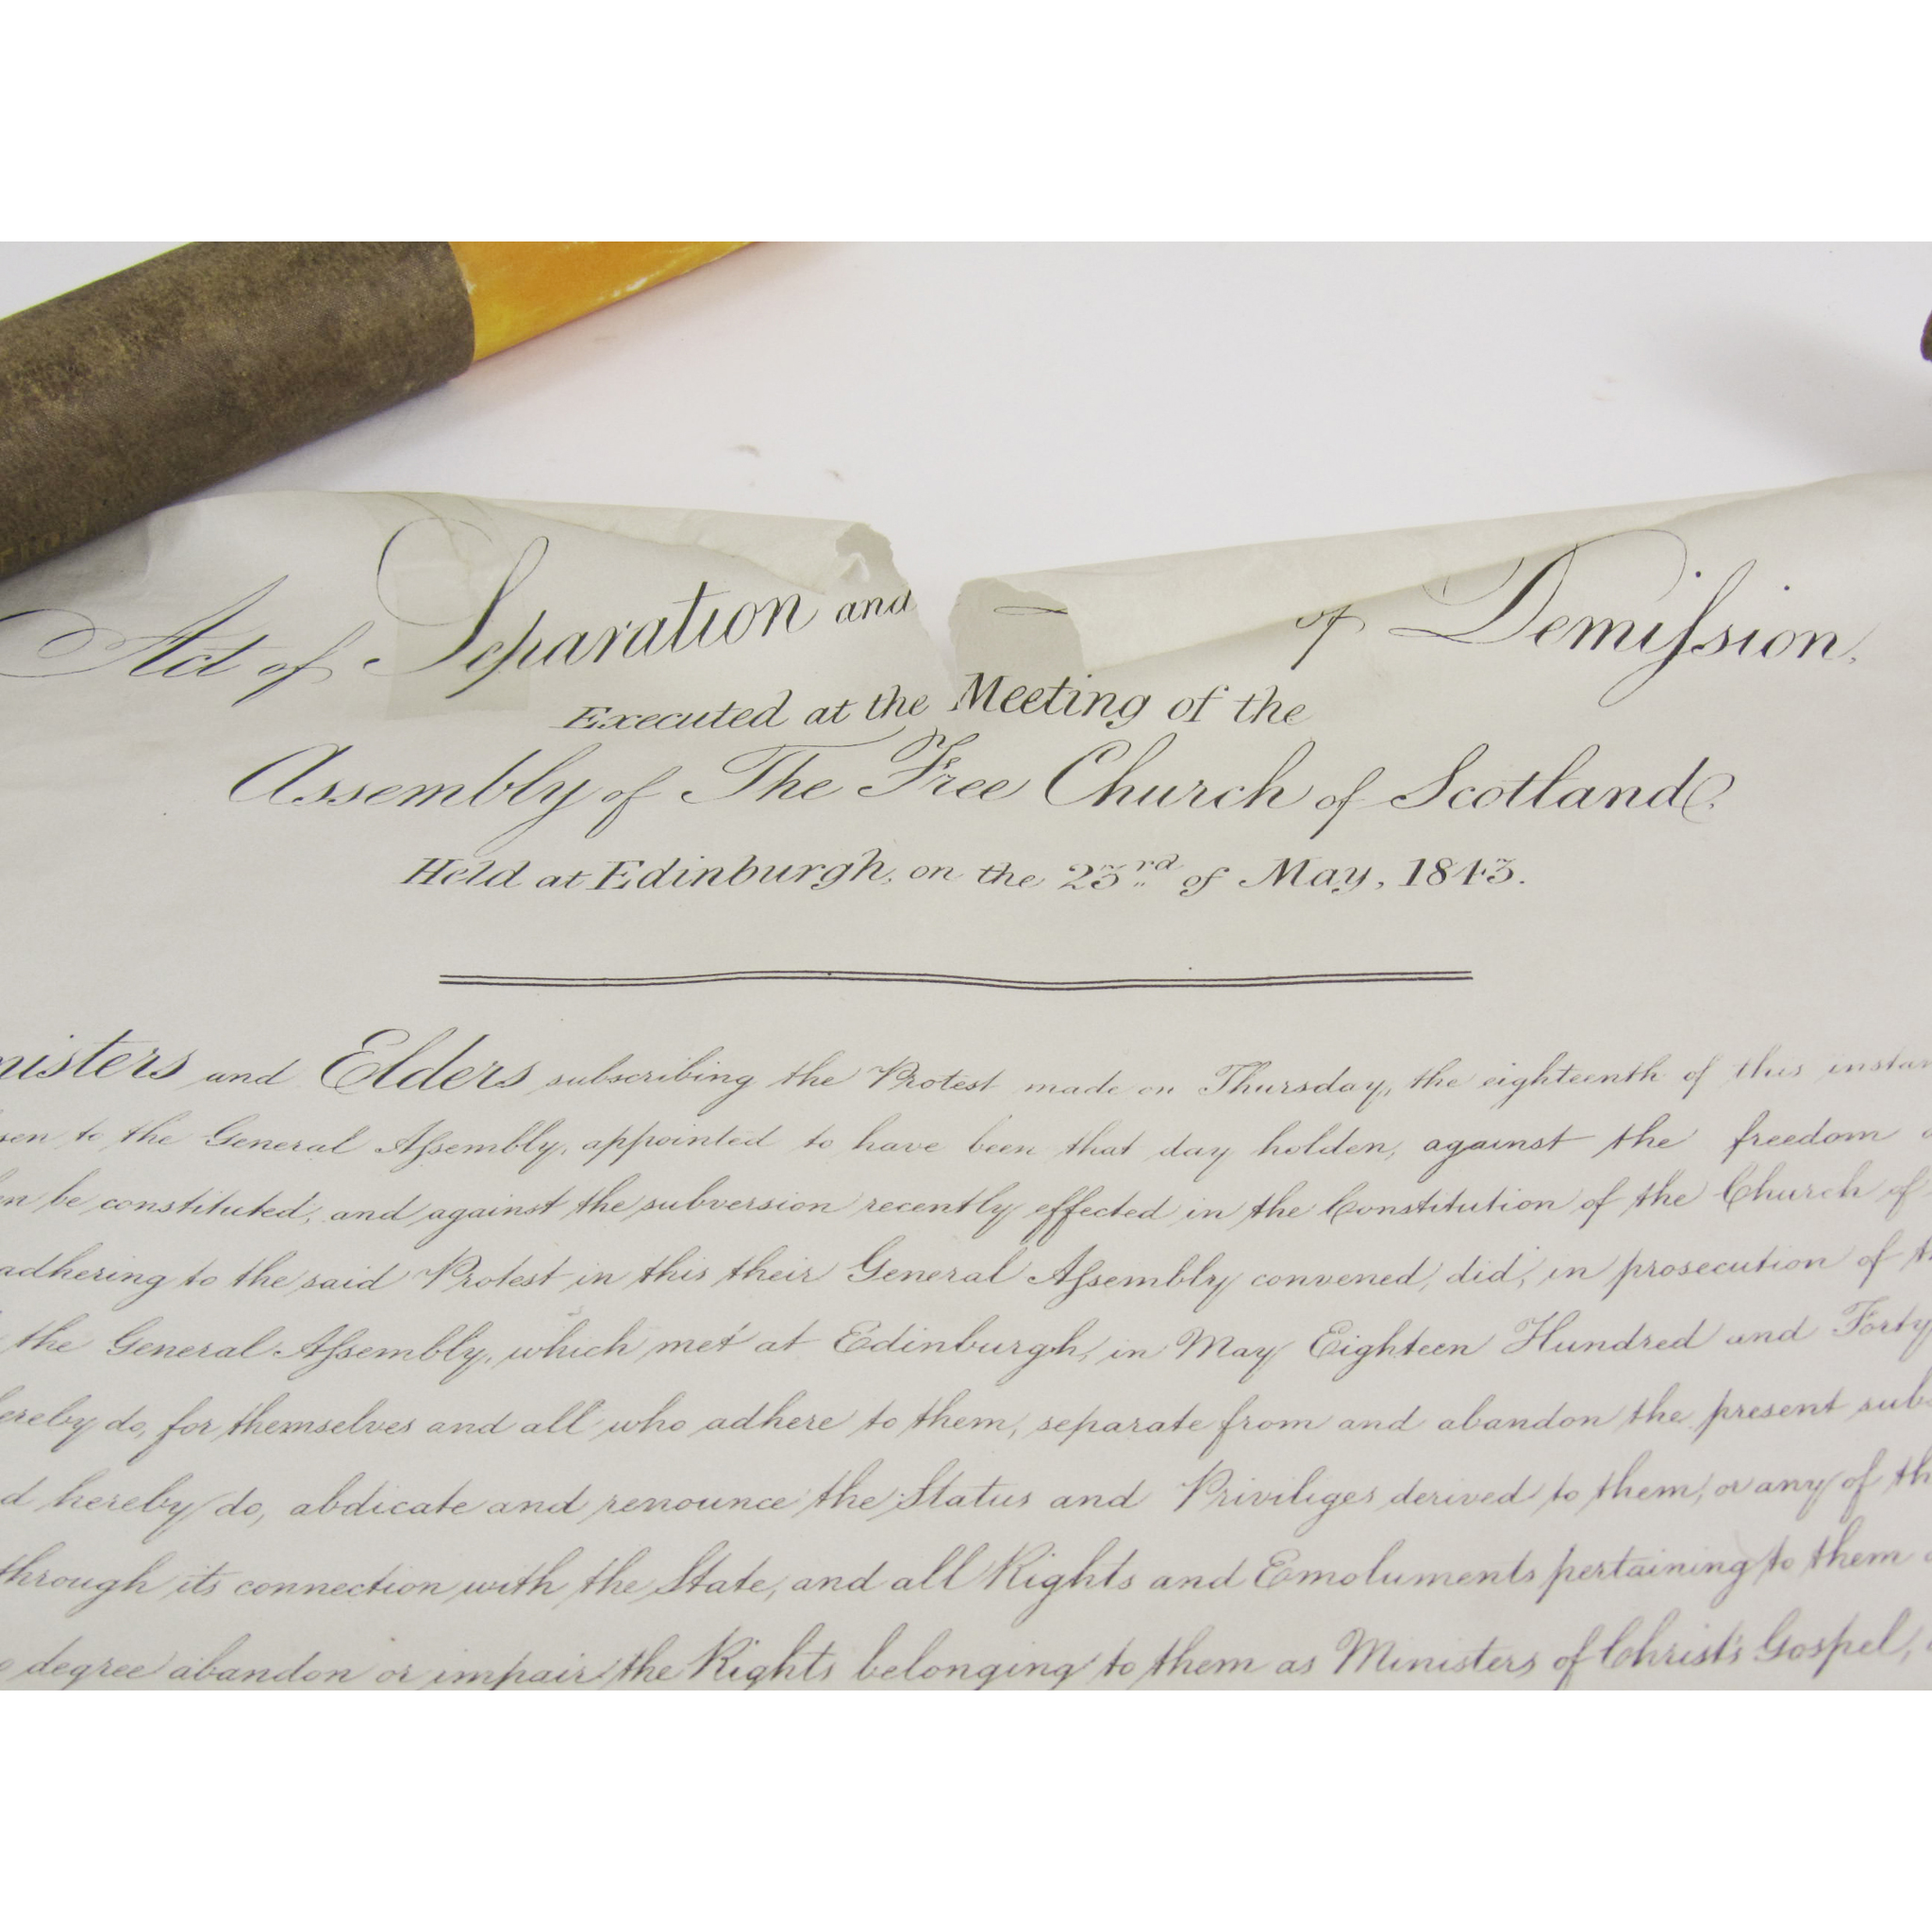 Act of Separation and of Demission,
Executed at the Meeting of the
Assembly of The Free Church of Scotland.
Held at Edinburgh, on the 23rd of May, 1843.
and Elders subscribing the Protest made on Thursday, the eighteenth of this
to the General Assembly, appointed to have been that day holden, against the freedom
be constituted, and against the subversion recently effected in the Constitution of the Church of
adhering to the said Protest in this their General Assembly convened, did, in prosecution of
the General Assembly, which met at Edinburgh, in May Eighteen Hundred and Forty
do, for themselves and all who adhere to them, separate from and abandon the present
hereby do, abdicate and renounce the Status and Priviliges derived to them, or any of
through its connection with the State, and all Rights and Emoluments pertaining to them
degree abandon or impair the Rights belonging to them as Ministers of Christ's Gospel,